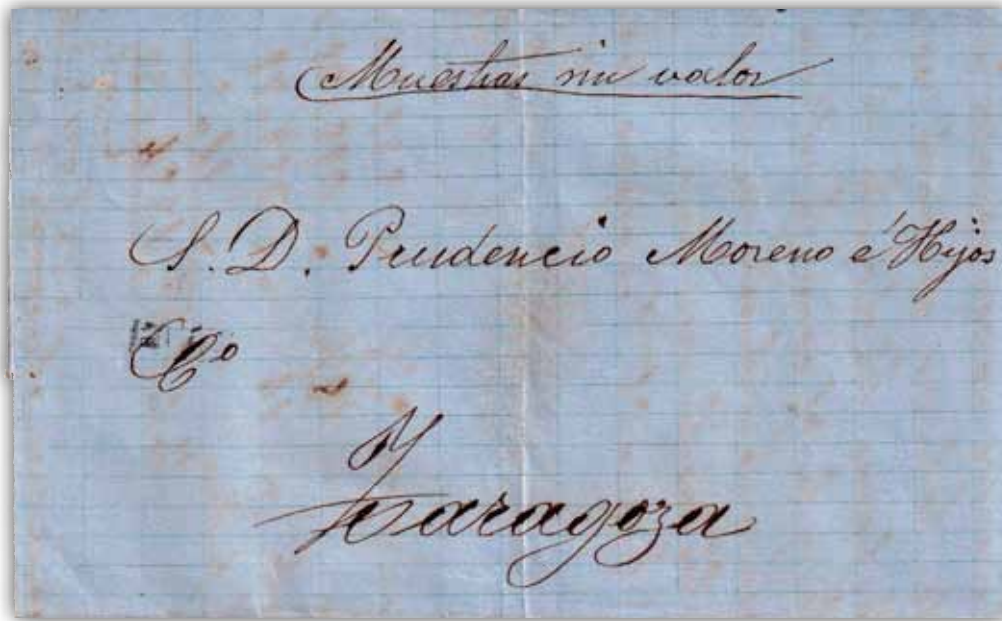 Muestras sin valor
S. D. Prudencio Moreno é Hijos
Cº
Zaragoza